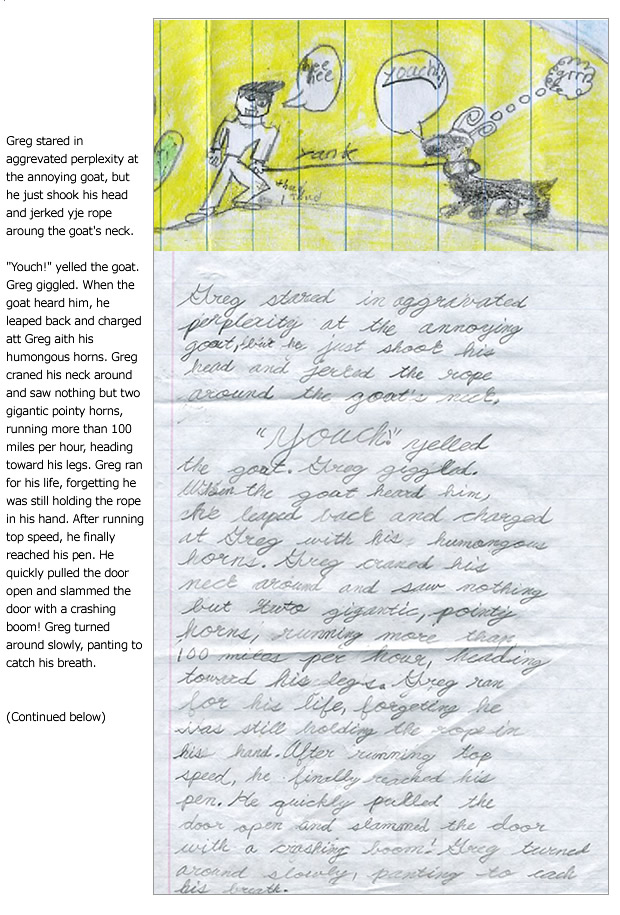 Greg stared in
aggrevated perplexity at
the annoying goat, but
he just shook his head
and jerked yje rope
aroung the goat's neck.
"Youch!" yelled the goat.
Greg giggled. When the
goat heard him, he
leaped back and charged
att Greg aith his
humongous horns. Greg
craned his neck around
and saw nothing but two
gigantic pointy horns,
running more than 100
miles per hour, heading
toward his legs. Greg ran
for his life, forgetting he
was still holding the rope
in his hand. After running
top speed, he finally
reached his pen. He
quickly pulled the door
open and slammed the
door with a crashing
boom! Greg turned
around slowly, panting to
catch his breath.
(Continued below)
hee
hee
youch!
grrr
yank
thud
Greg stared in aggravated
perplexity at the annoying
goat, but he just shook his
head and jerked the rope
around the goat's neck.
"Youch!" yelled
the goat. Greg giggled.
When the goat heard him,
he leaped back and charged
at Greg with his humongous
horns. Greg craned his
neck around and saw nothing
but two gigantic, pointy
horns, running more than
100 miles per hour, heading
toward his legs. Greg ran
for his life, forgeting he
was still holding the rope in
his hand. After running top
speed, he finally reached his
pen. He quickly pulled the
door open and slammed the door
with a crashing boom! Greg turned
around slowly, panting to cach
his breath.